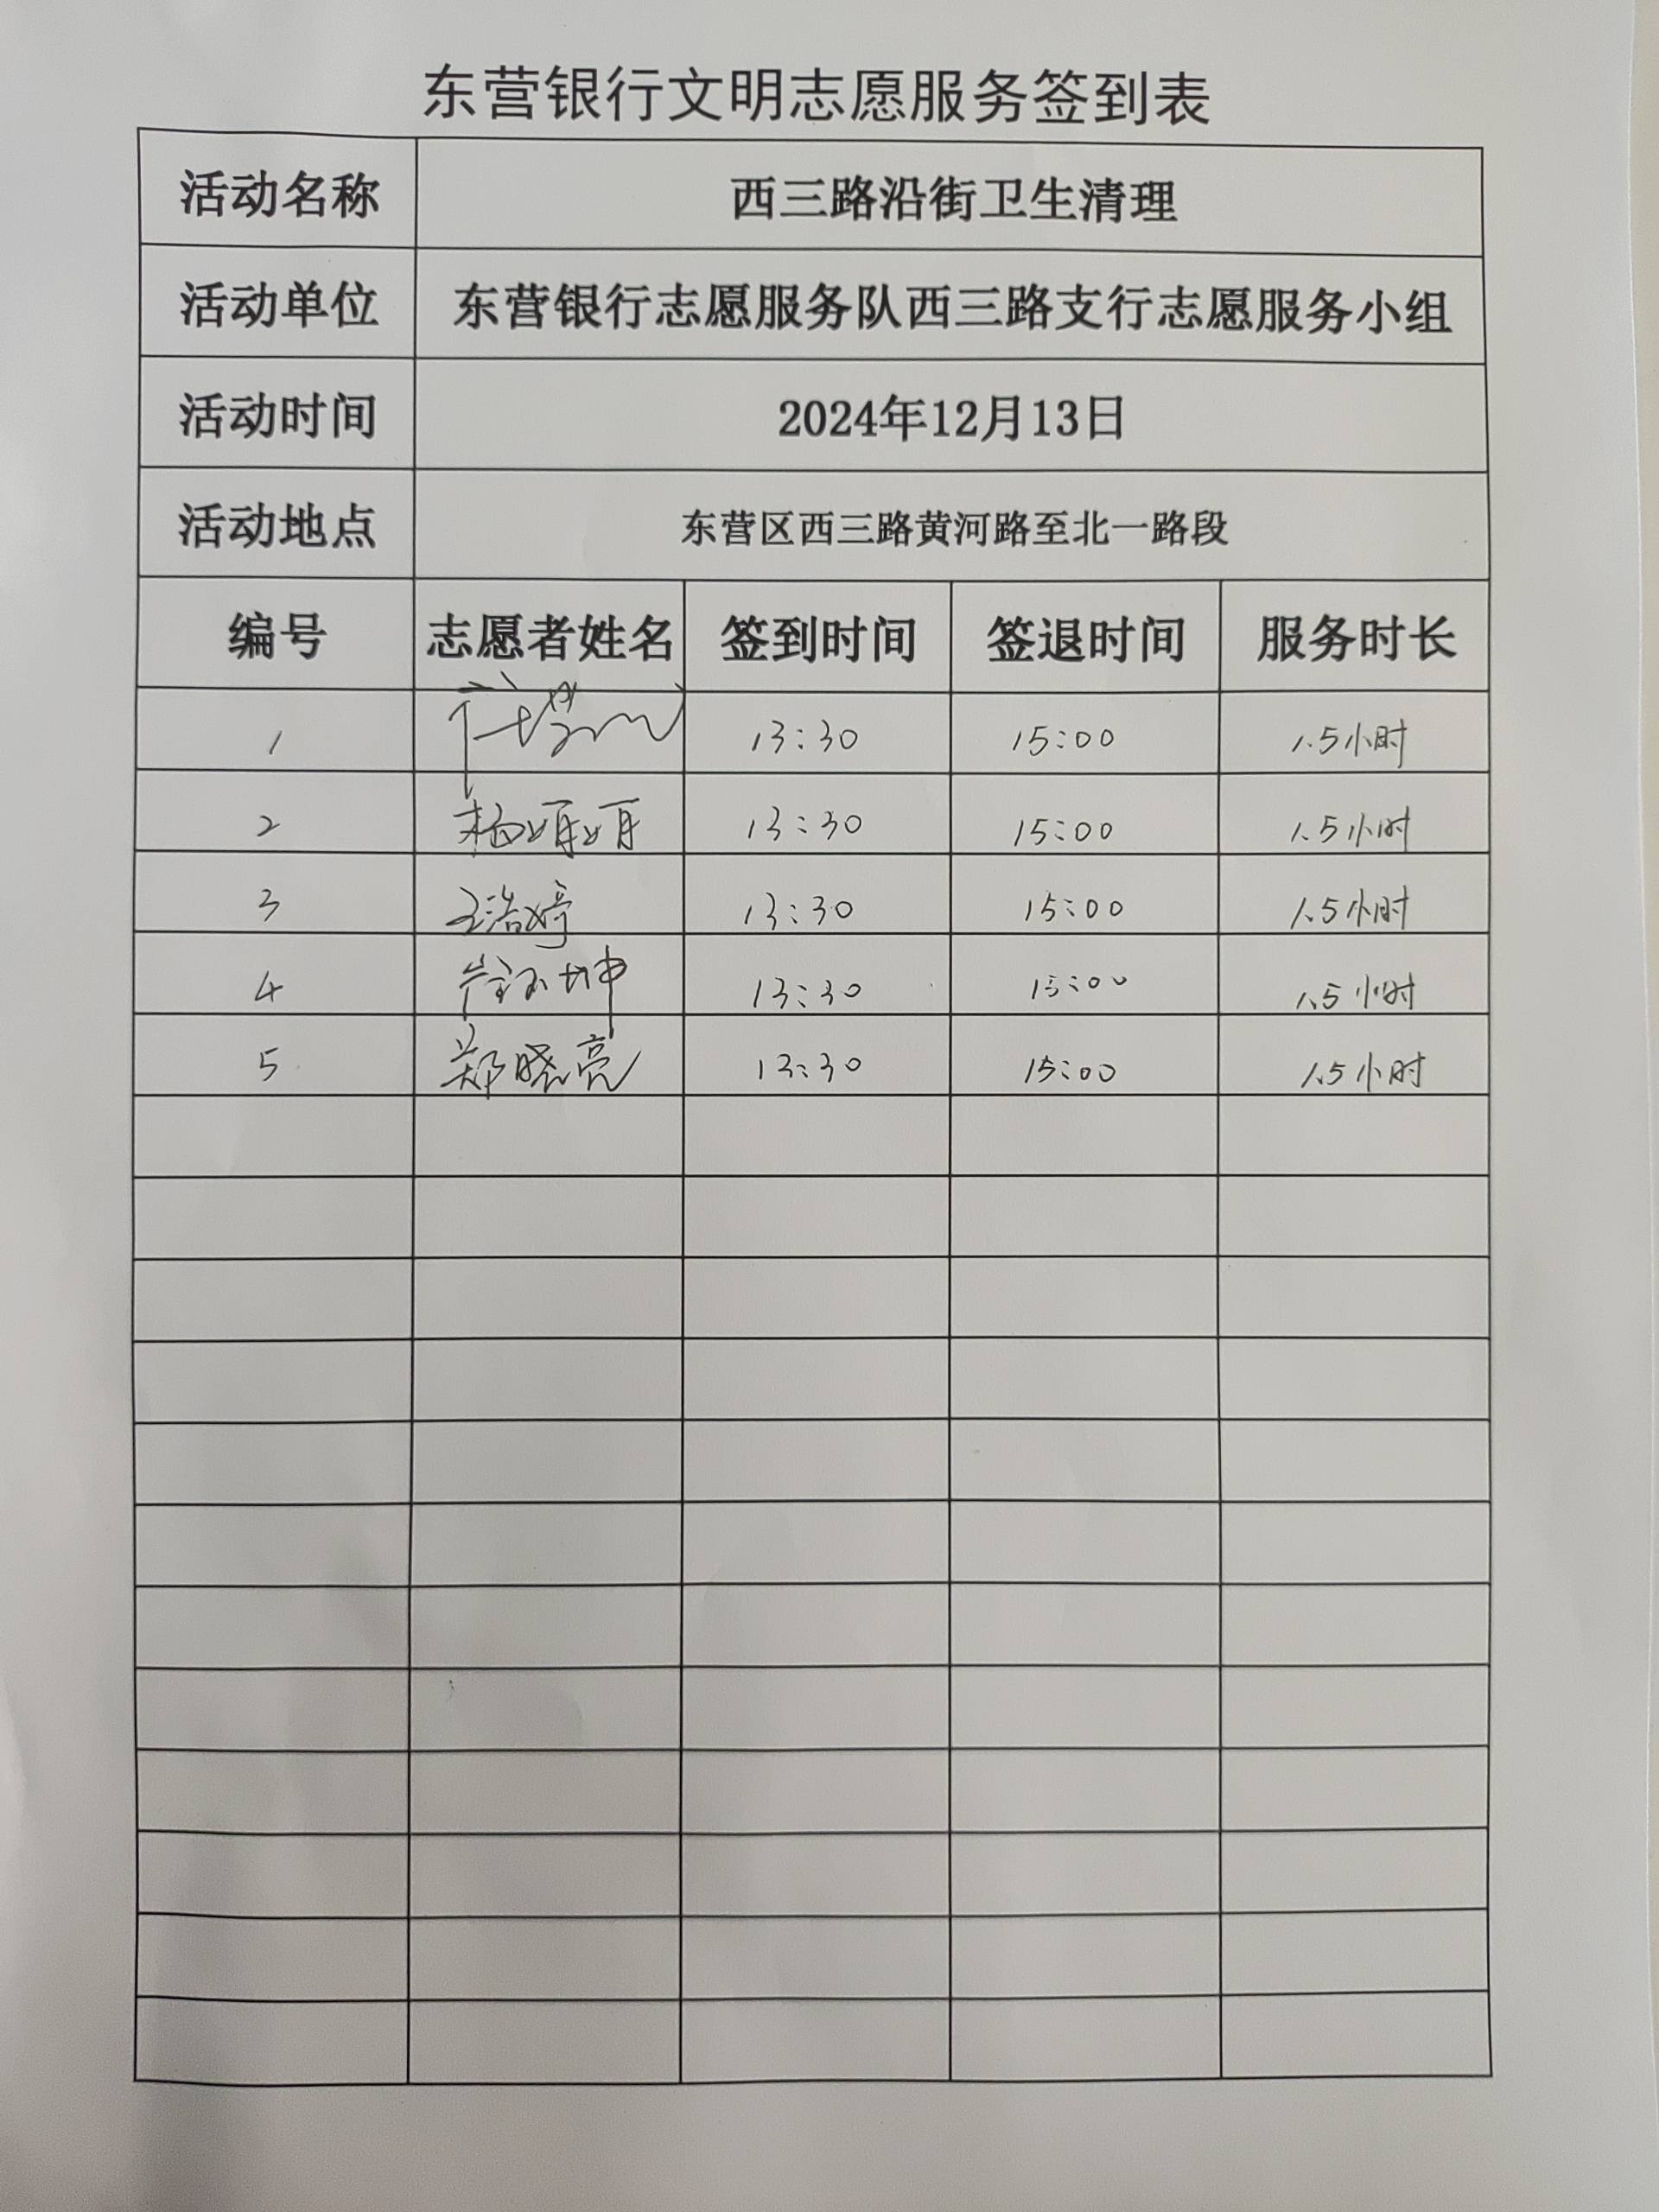 东营银行文明志愿服务签到表
活动名称 西三路沿街卫生清理
活动单位 东营银行志愿服务队西三路支行志愿服务小组
活动时间 2024年12月13日
活动地点 东营区西三路黄河路至北一路段
编号 志愿者姓名 签到时间 签退时间 服务时长
1 13:30 15:00 1.5小时
2 杨娟娟 13:30 15:00 1.5小时
3 王浩婷 13:30 15:00 1.5小时
4 13:30 15:00 1.5小时
5 郑晓亮 13:30 15:00 1.5小时